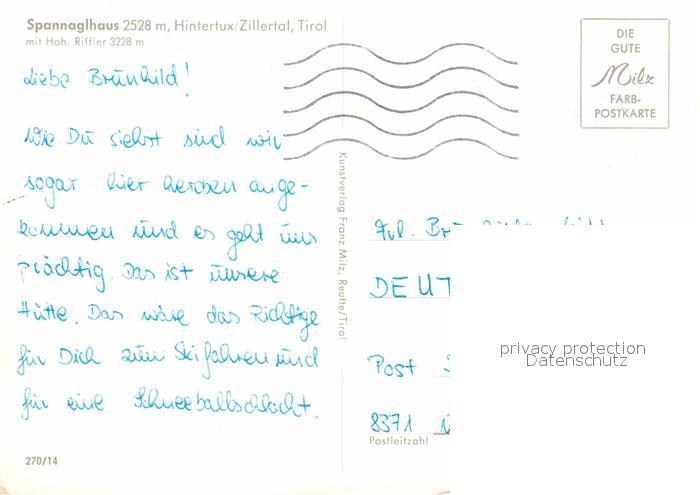 Spannaglhaus 2528 m, Hintertux/Zillertal, Tirol
mit Hoh. Riffler 3228 m
DIE
GUTE
Milz
FARB-
POSTKARTE
Liebe Brünhild!
Wie Du siehst sind wir
sogar hier heroben ange-
kommen und es geht uns
prächtig. Das ist unsere
Hütte. Das wäre das Richtige
für Dich zum Skifahren und
für eine Schneeballschlacht.
270/14
Kunstverlag Franz Milz, Reutte/Tirol
Frl.
DEUT
Post
8371
Postleitzahl
privacy protection
Datenschutz